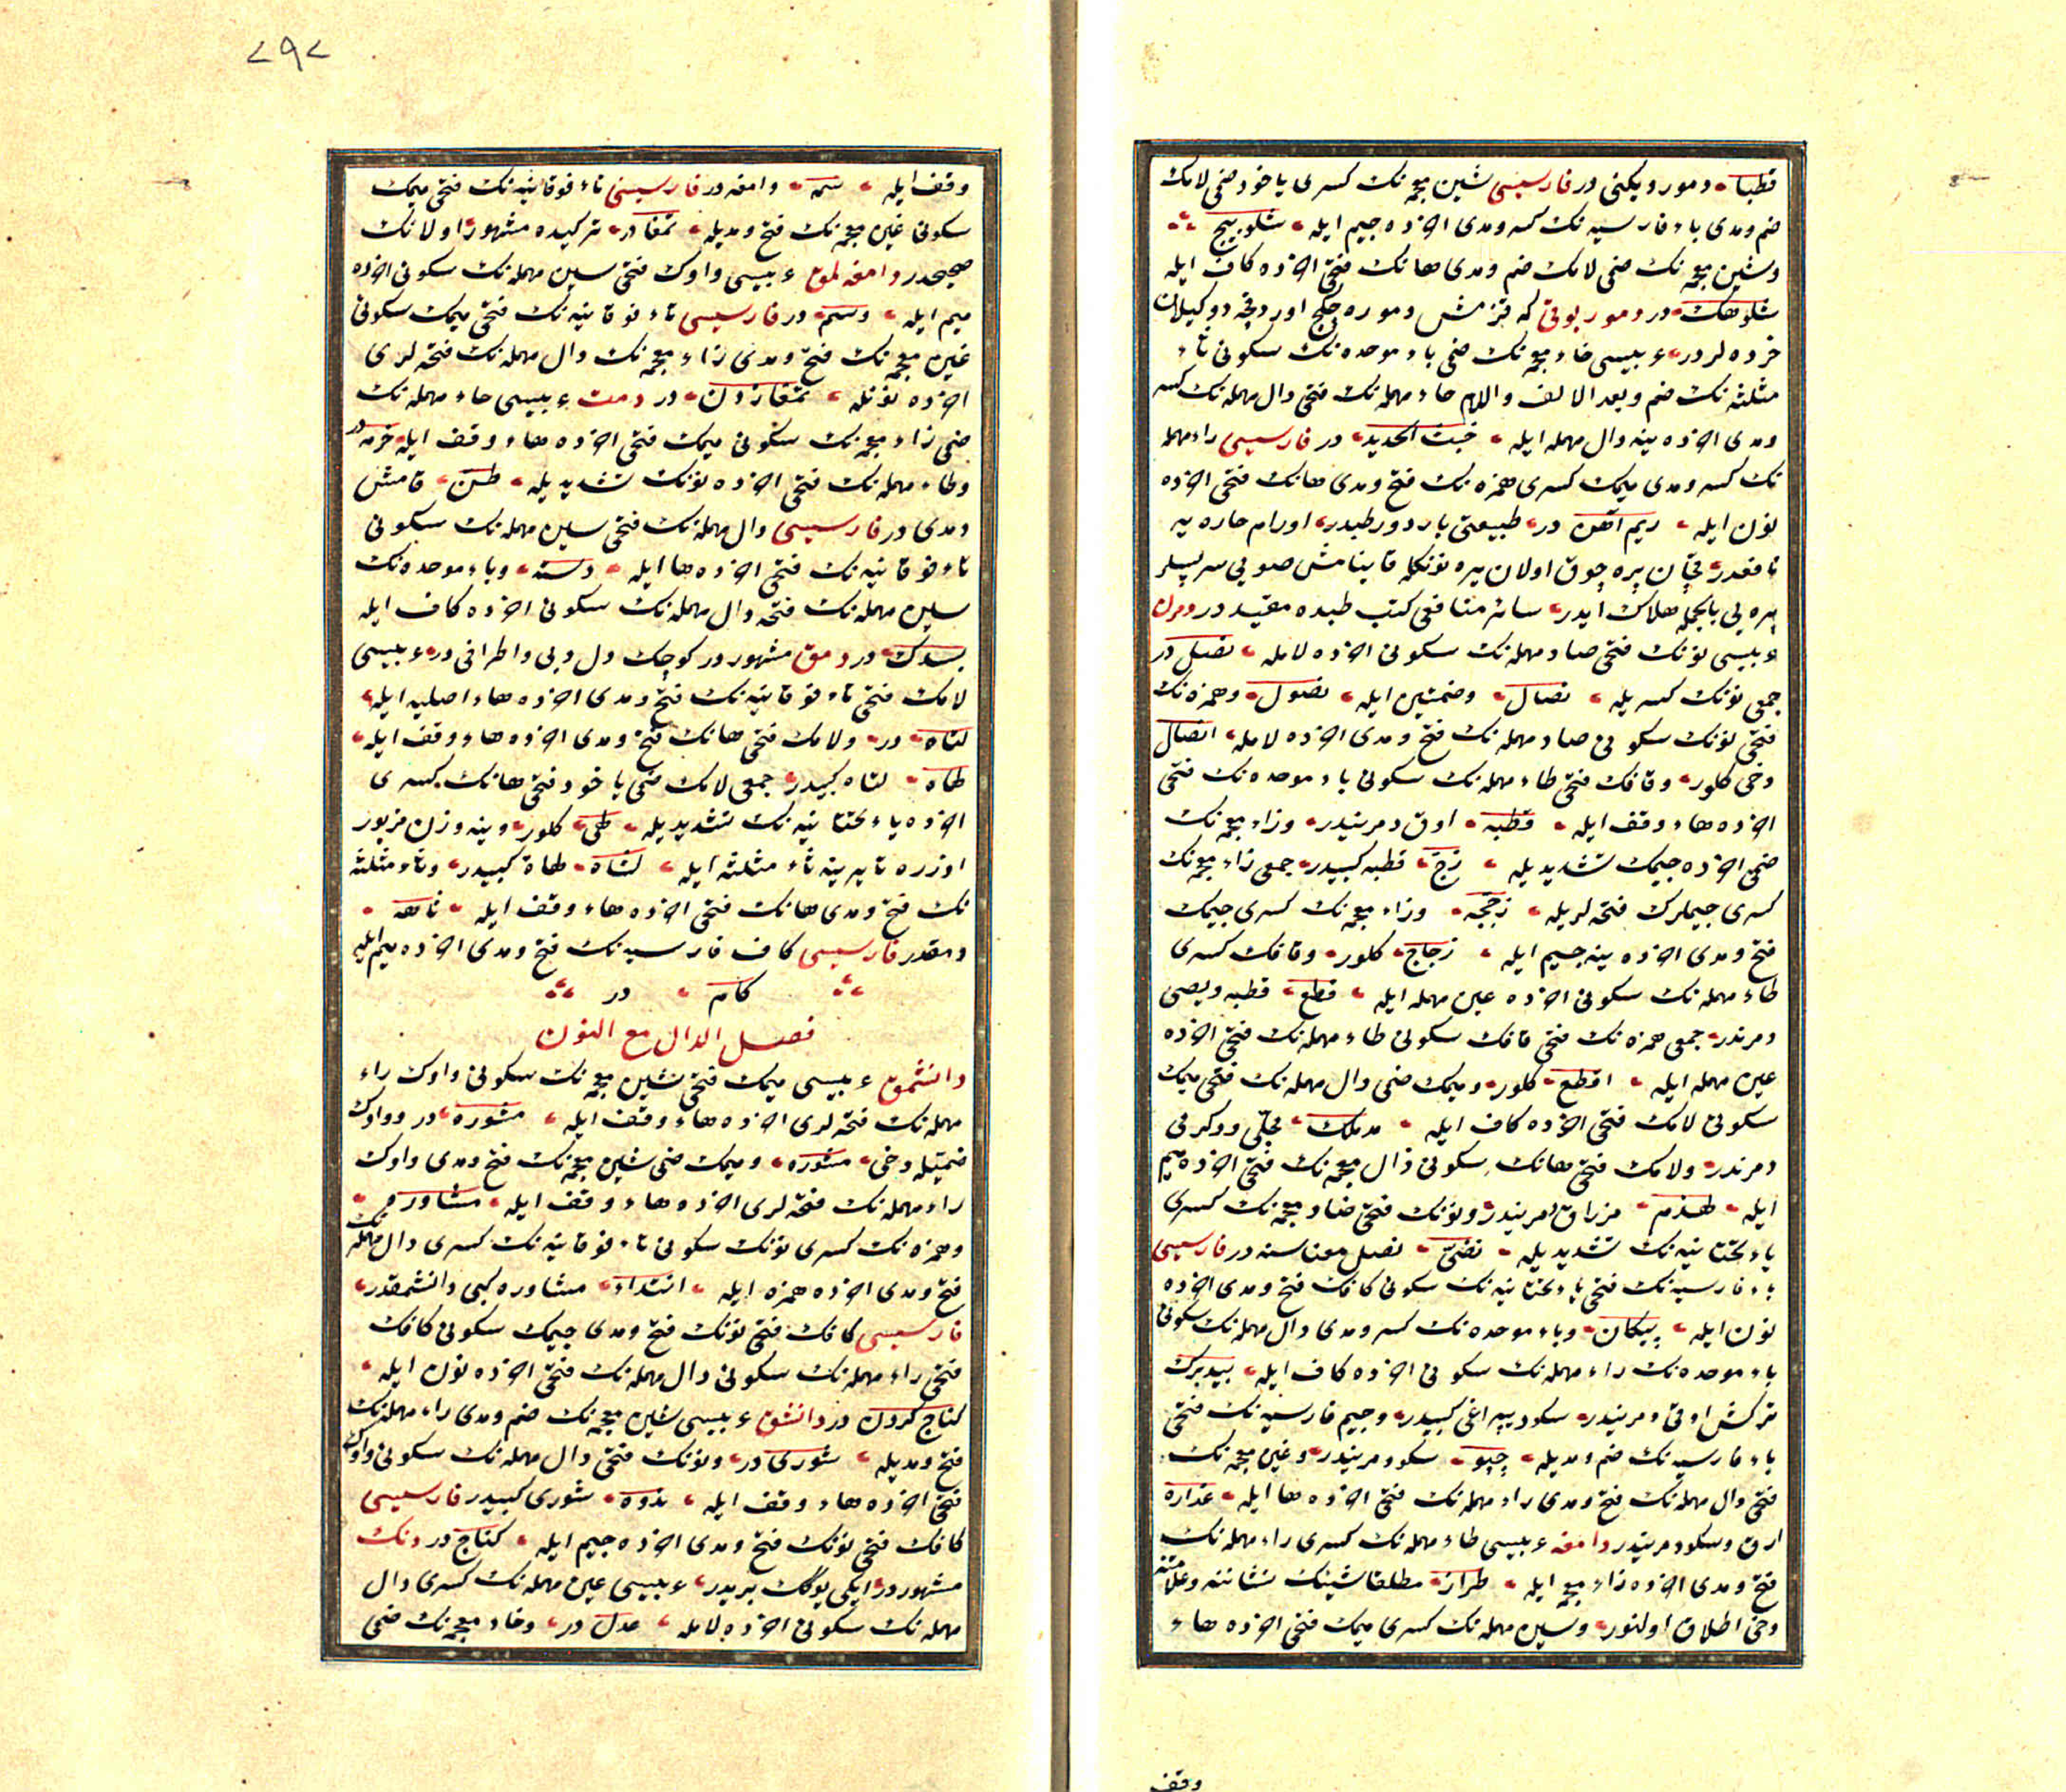 قطبا دمور دیکنی در فارسیسی شین معجمه نك کسری یاخود ضمی لامك
ضم ومدی باء فارسیه نك کسر ومدی اخرده جیم ایله شلوبیج
وشین معجمه نك ضمی لامك ضم ومدی هانك فتحی اخرده کاف ایله
شلوهك در دمور بوقی که قزمش دموره چکج اوردقچه دوکیلان
خرده لردر عربیسی خاء معجمه نك ضمی باء موحده نك سکونی ثاء
مثلثه نك ضم وبعد الالف واللام حاء مهمله نك فتحی دال مهمله نك کسر
ومدی اخرده ینه دال مهمله ایله خبث الحدید در فارسیسی راء مهمله
نك کسر ومدی میمك کسری همزه نك فتح ومدی هانك فتحی اخرده
نون ایله ریم آهن در طبیعتی بارد ورطبدر اورام حاره یه
نافعدر قچان پره چوق اولان یره نونكله قاینامش صویی سرپسلر
پره یی بالجمله هلاك ایدر سائر منافعی کتب طبده مقید در دمرن
عربیسی نونك فتحی صاد مهمله نك سکونی اخرده لامله نصل در
جمعی نونك کسریله نصال وضمتین ایله نصول وهمزه نك
فتحی نونك سکونی صاد مهمله نك فتح ومدی اخرده لامله انصال
دخی کلور وقافك فتحی طاء مهمله نك سکونی باء موحده نك فتحی
اخرده هاء وقف ایله قطبه اوق دمریندر وزاء معجمه نك
ضمی اخرده جیمك تشدیدیله زج قطبه کبیدر جمعی زاء معجمه نك
کسری جیملرك فتحه لریله زججه وزاء معجمه نك کسری جیمك
فتح ومدی اخرده ینه جیم ایله زجاج کلور وقافك کسری
طاء مهمله نك سکونی اخرده عین مهمله ایله قطع قطبه ویصی
دمرندر جمعی همزه نك فتحی قافك سکونی طاء مهمله نك فتحی اخرده
عین مهمله ایله اقطع کلور ومیمك ضمی دال مهمله نك فتحی میمك
سکونی لامك فتحی اخرده کاف ایله مدملك مجلی ودکرنی
دمرندر ولامك فتحی هانك سکونی ذال معجمه نك فتحی اخرده میم
ایله لهذم مزراق دمریندر ونونك فتحی ضاد معجمه نك کسری
یاء تحتانیه نك تشدیدیله نضی نصل معناسنه در فارسیسی
باء فارسیه نك فتحی یاء تحتانیه نك سکونی کافك فتح ومدی اخرده
نون ایله پیکان وباء موحده نك کسر ومدی دال مهمله نك سکونی
باء موحده نك راء مهمله نك سکونی اخرده کاف ایله بیدبرك
ترکش اوقی دمریندر سکود یپراغی کبیدر وجیم فارسیه نك فتحی
باء فارسیه نك ضم ومدیله چپو سکود مریندر وغین معجمه نك
فتحی دال مهمله نك فتح ومدی راء مهمله نك فتحی اخرده ها ایله غداره
ارق وسکود مریندر دامغه عربیسی طاء مهمله نك کسری راء مهمله نك
فتح ومدی اخرده زاء معجمه ایله طراز مطلقا شینك نشاننه وعلامتنه
دخی اطلاق اولنور وسین مهمله نك کسری میمك فتحی اخرده هاء
وقف
۷۹۷
وقف ایله سمه دامغه در فارسیسی تاء فوقانیه نك فتحی میمك
سکونی غین معجمه نك فتح ومدیله تمغا در ترکیده مشهور اولانك
صحیحدر دامغه لمق عربیسی واوك فتحی سین مهمله نك سکونی اخرده
میم ایله وسم در فارسیسی تاء فوقانیه نك فتحی میمك سکونی
غین معجمه نك فتح ومدی زاء معجمه نك دال مهمله نك فتحه لری
اخرده نونله تمغازدن در دمت عربیسی حاء مهمله نك
ضمی زاء معجمه نك سکونی میمك فتحی اخرده هاء وقف ایله حزمه در
وطاء مهمله نك فتحی اخرده نونك تشدیدیله طن قامش
دمدی در فارسیسی دال مهمله نك فتحی سین مهمله نك سکونی
تاء فوقانیه نك فتحی اخرده ها ایله دسته وباء موحده نك
سین مهمله نك فتحه دال مهمله نك سکونی اخرده کاف ایله
بسدك در دمق مشهور در کوچك دل دبی واطرافی در عربیسی
لامك فتحی تاء فوقانیه نك فتح ومدی اخرده هاء اصلیه ایله
لتاه در ولامك فتحی هانك فتح ومدی اخرده هاء وقف ایله
لهاه لتاه کبیدر جمعی لامك ضمی یاخود فتحی هانك کسری
اخرده یاء تحتانیه نك تشدیدیله لهی کلور وینه وزن مزبور
اوزره تا یرینه ثاء مثلثه ایله لثاه لهاة کبیدر وثاء مثلثه
نك فتح ومدی هانك فتحی اخرده هاء وقف ایله ثاهه
دمقدر فارسیسی کاف فارسیه نك فتح ومدی اخرده میم ایله
کام در
فصل الدال مع النون
دانشمق عربیسی میمك فتحی شین معجمه نك سکونی واوك راء
مهمله نك فتحه لری اخرده هاء وقف ایله مشوره در وواوك
ضمتیله دخی مشوره ومیمك ضمی شین معجمه نك فتح ومدی واوك
راء مهمله نك فتحه لری اخرده هاء وقف ایله مشاوره
وهمزه نك کسری نونك سکونی تاء فوقانیه نك کسری دال مهمله نك
فتح ومدی اخرده همزه ایله انتداء مشاوره کبی دانشمقدر
فارسیسی کافك فتحی نونك فتح ومدی جیمك سکونی کافك
فتحی راء مهمله نك سکونی دال مهمله نك فتحی اخرده نون ایله
کناج کردن در دانشق عربیسی شین معجمه نك ضم ومدی راء مهمله نك
فتح ومدیله شوری در ونونك فتحی دال مهمله نك سکونی واوك
فتحی اخرده هاء وقف ایله ندوه شوری کبیدر فارسیسی
کافك فتحی نونك فتح ومدی اخرده جیم ایله کناج در دنك
مشهور در ایکی یوكك بریدر عربیسی عین مهمله نك کسری دال
مهمله نك سکونی اخرده لامله عدل در وخاء معجمه نك ضمی